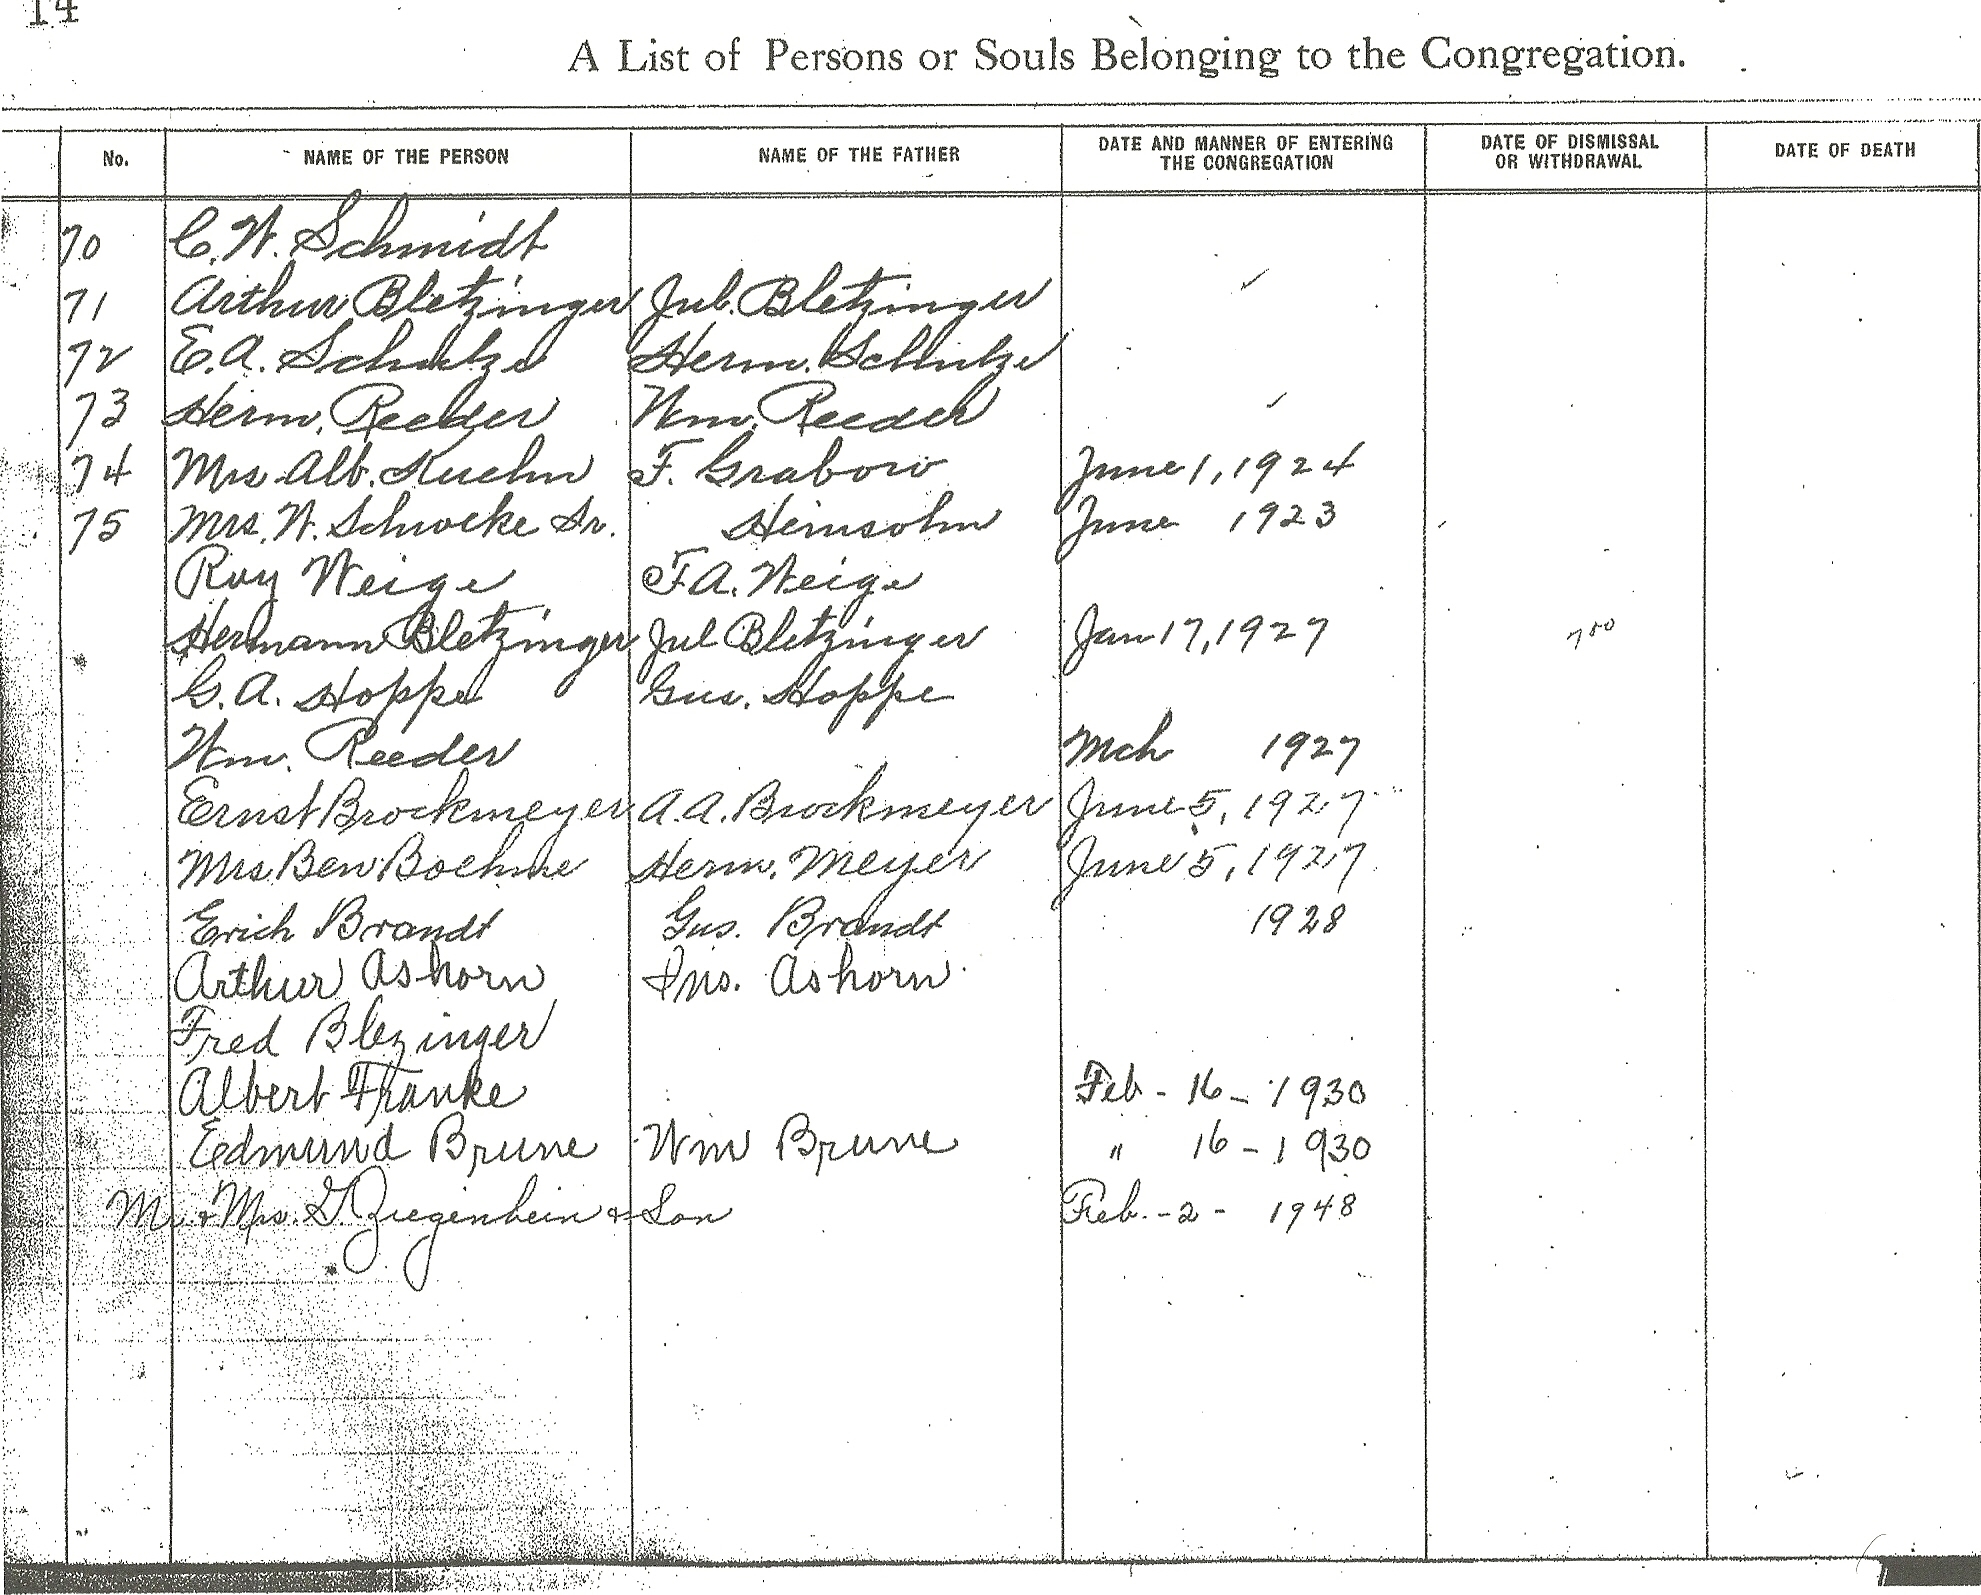 14
A List of Persons or Souls Belonging to the Congregation.
No. NAME OF THE PERSON NAME OF THE FATHER DATE AND MANNER OF ENTERING THE CONGREGATION DATE OF DISMISSAL OR WITHDRAWAL DATE OF DEATH
70 C. W. Schmidt
71 Arthur Bletzinger Jul. Bletzinger
72 E. A. Schulze Herm. Schulze
73 Herm. Reeder Wm. Reeder
74 Mrs Alb. Kuehn F. Grabow June 1, 1924
75 Mrs. W. Schwecke Sr. Heinsohn June 1923
Roy Weige F. A. Weige
Hermann Bletzinger Jul Bletzinger Jan 17, 1927
G. A. Hoppe Gus. Hoppe
Wm. Reeder Mch 1927
Ernst Brockmeyer A. A. Brockmeyer June 5, 1927
Mrs Ben Boehme Herm. Meyer June 5, 1927
Erich Brandt Gus. Brandt 1928
Arthur Ashorn Jno. Ashorn
Fred Blezinger
Albert Franke Feb - 16 - 1930
Edmund Brune Wm Brune " 16 - 1930
Mr. & Mrs. G. Ziegenhein & Son Feb. - 2 - 1948